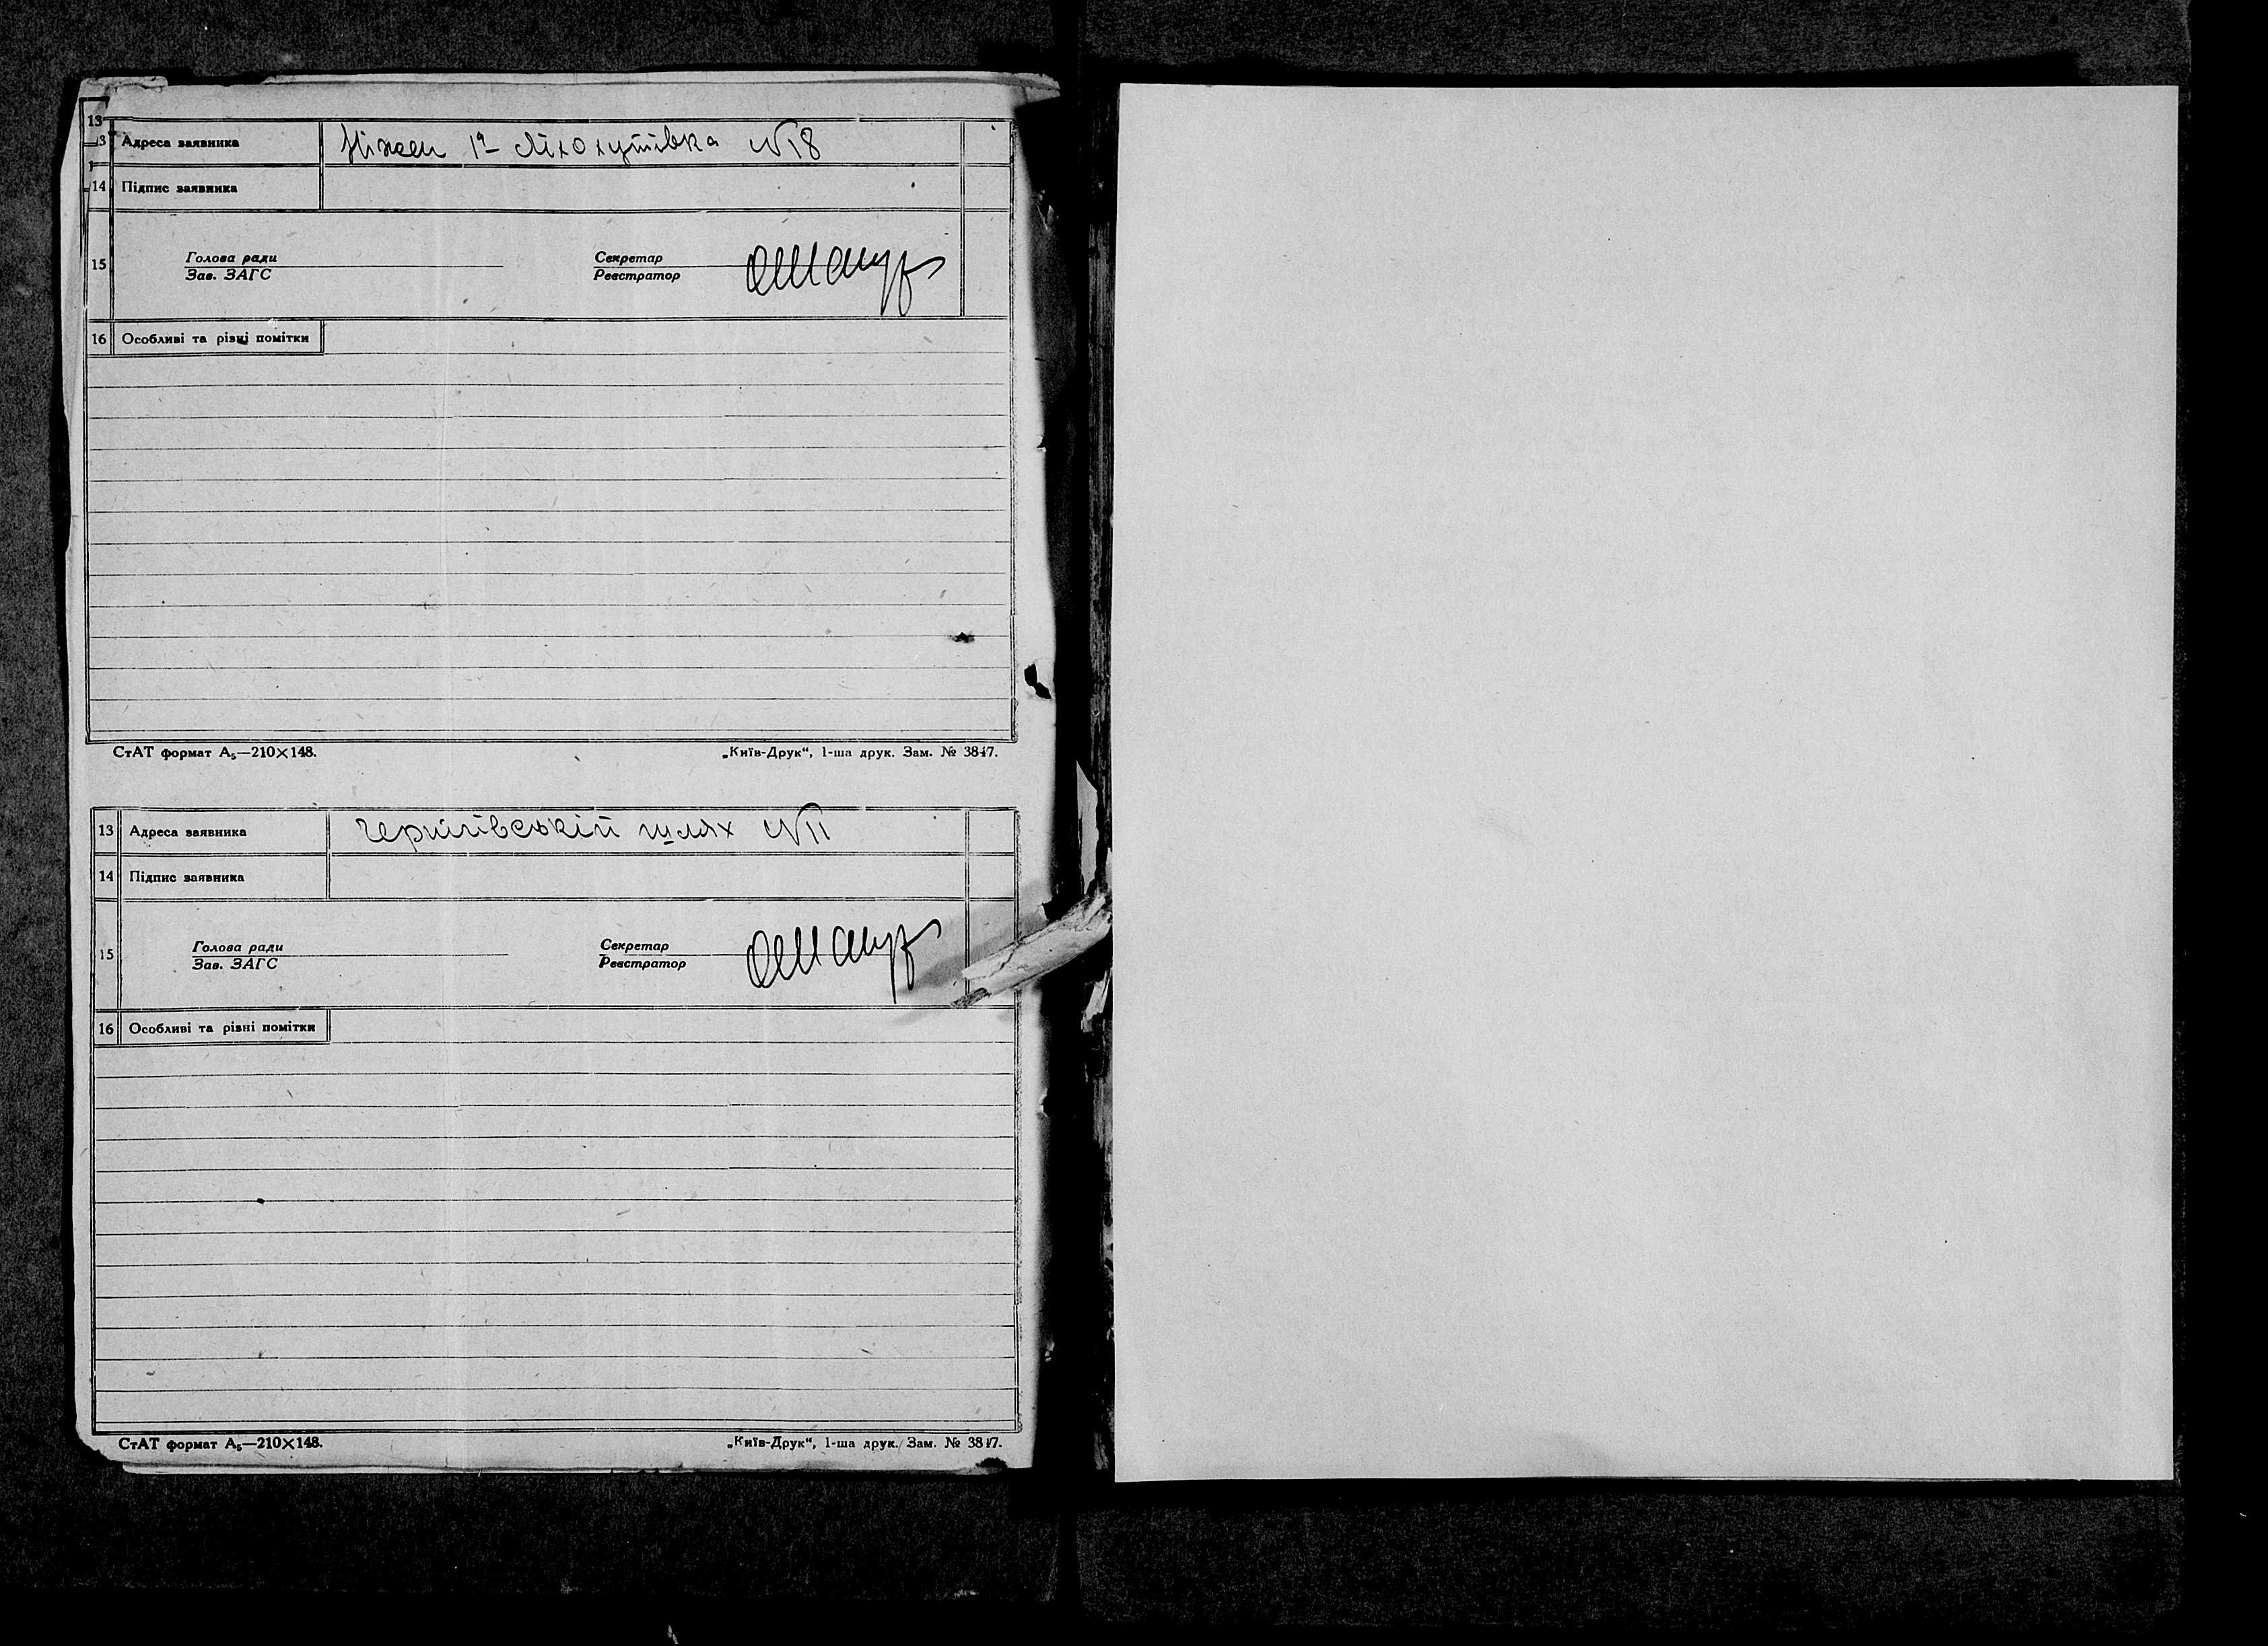 13
3 Адреса заявника Ніжен 1а Ліхохутівка №18
14 Підпис заявника
15 Голова ради Секретар
Зав. ЗАГС Реєстратор
16 Особливі та різні помітки
СтАТ формат А₅—210×148. „Київ-Друк“, 1-ша друк. Зам. № 3847.
13 Адреса заявника Чернігівській шлях №11
14 Підпис заявника
15 Голова ради Секретар
Зав. ЗАГС Реєстратор
16 Особливі та різні помітки
СтАТ формат А₅—210×148. „Київ-Друк“, 1-ша друк. Зам. № 3847.